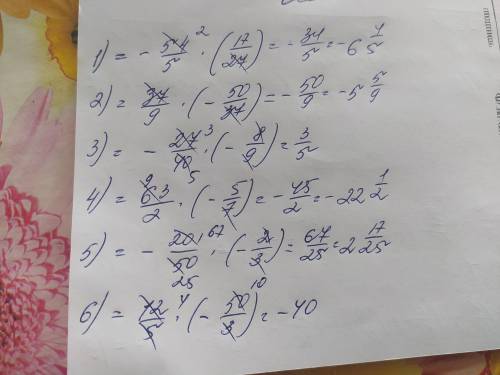 1) = - 54/5 ² · (17/27) = - 34/5 = - 6 4/5
2) = 37/9 · (- 50/37) = - 50/9 = - 5 5/9
3) = - 27/40 ³ ₅ · (- 8/9) = 3/5
4) = ⁹ 63/2 · (- 5/7) = - 45/2 = - 22 1/2
5) = - 201/50 ⁶⁷ ₂₅ · (- 2/3) = 67/25 = 2 17/25
6) = 12/5 ⁴ · (- 50/3) ¹⁰ = - 40